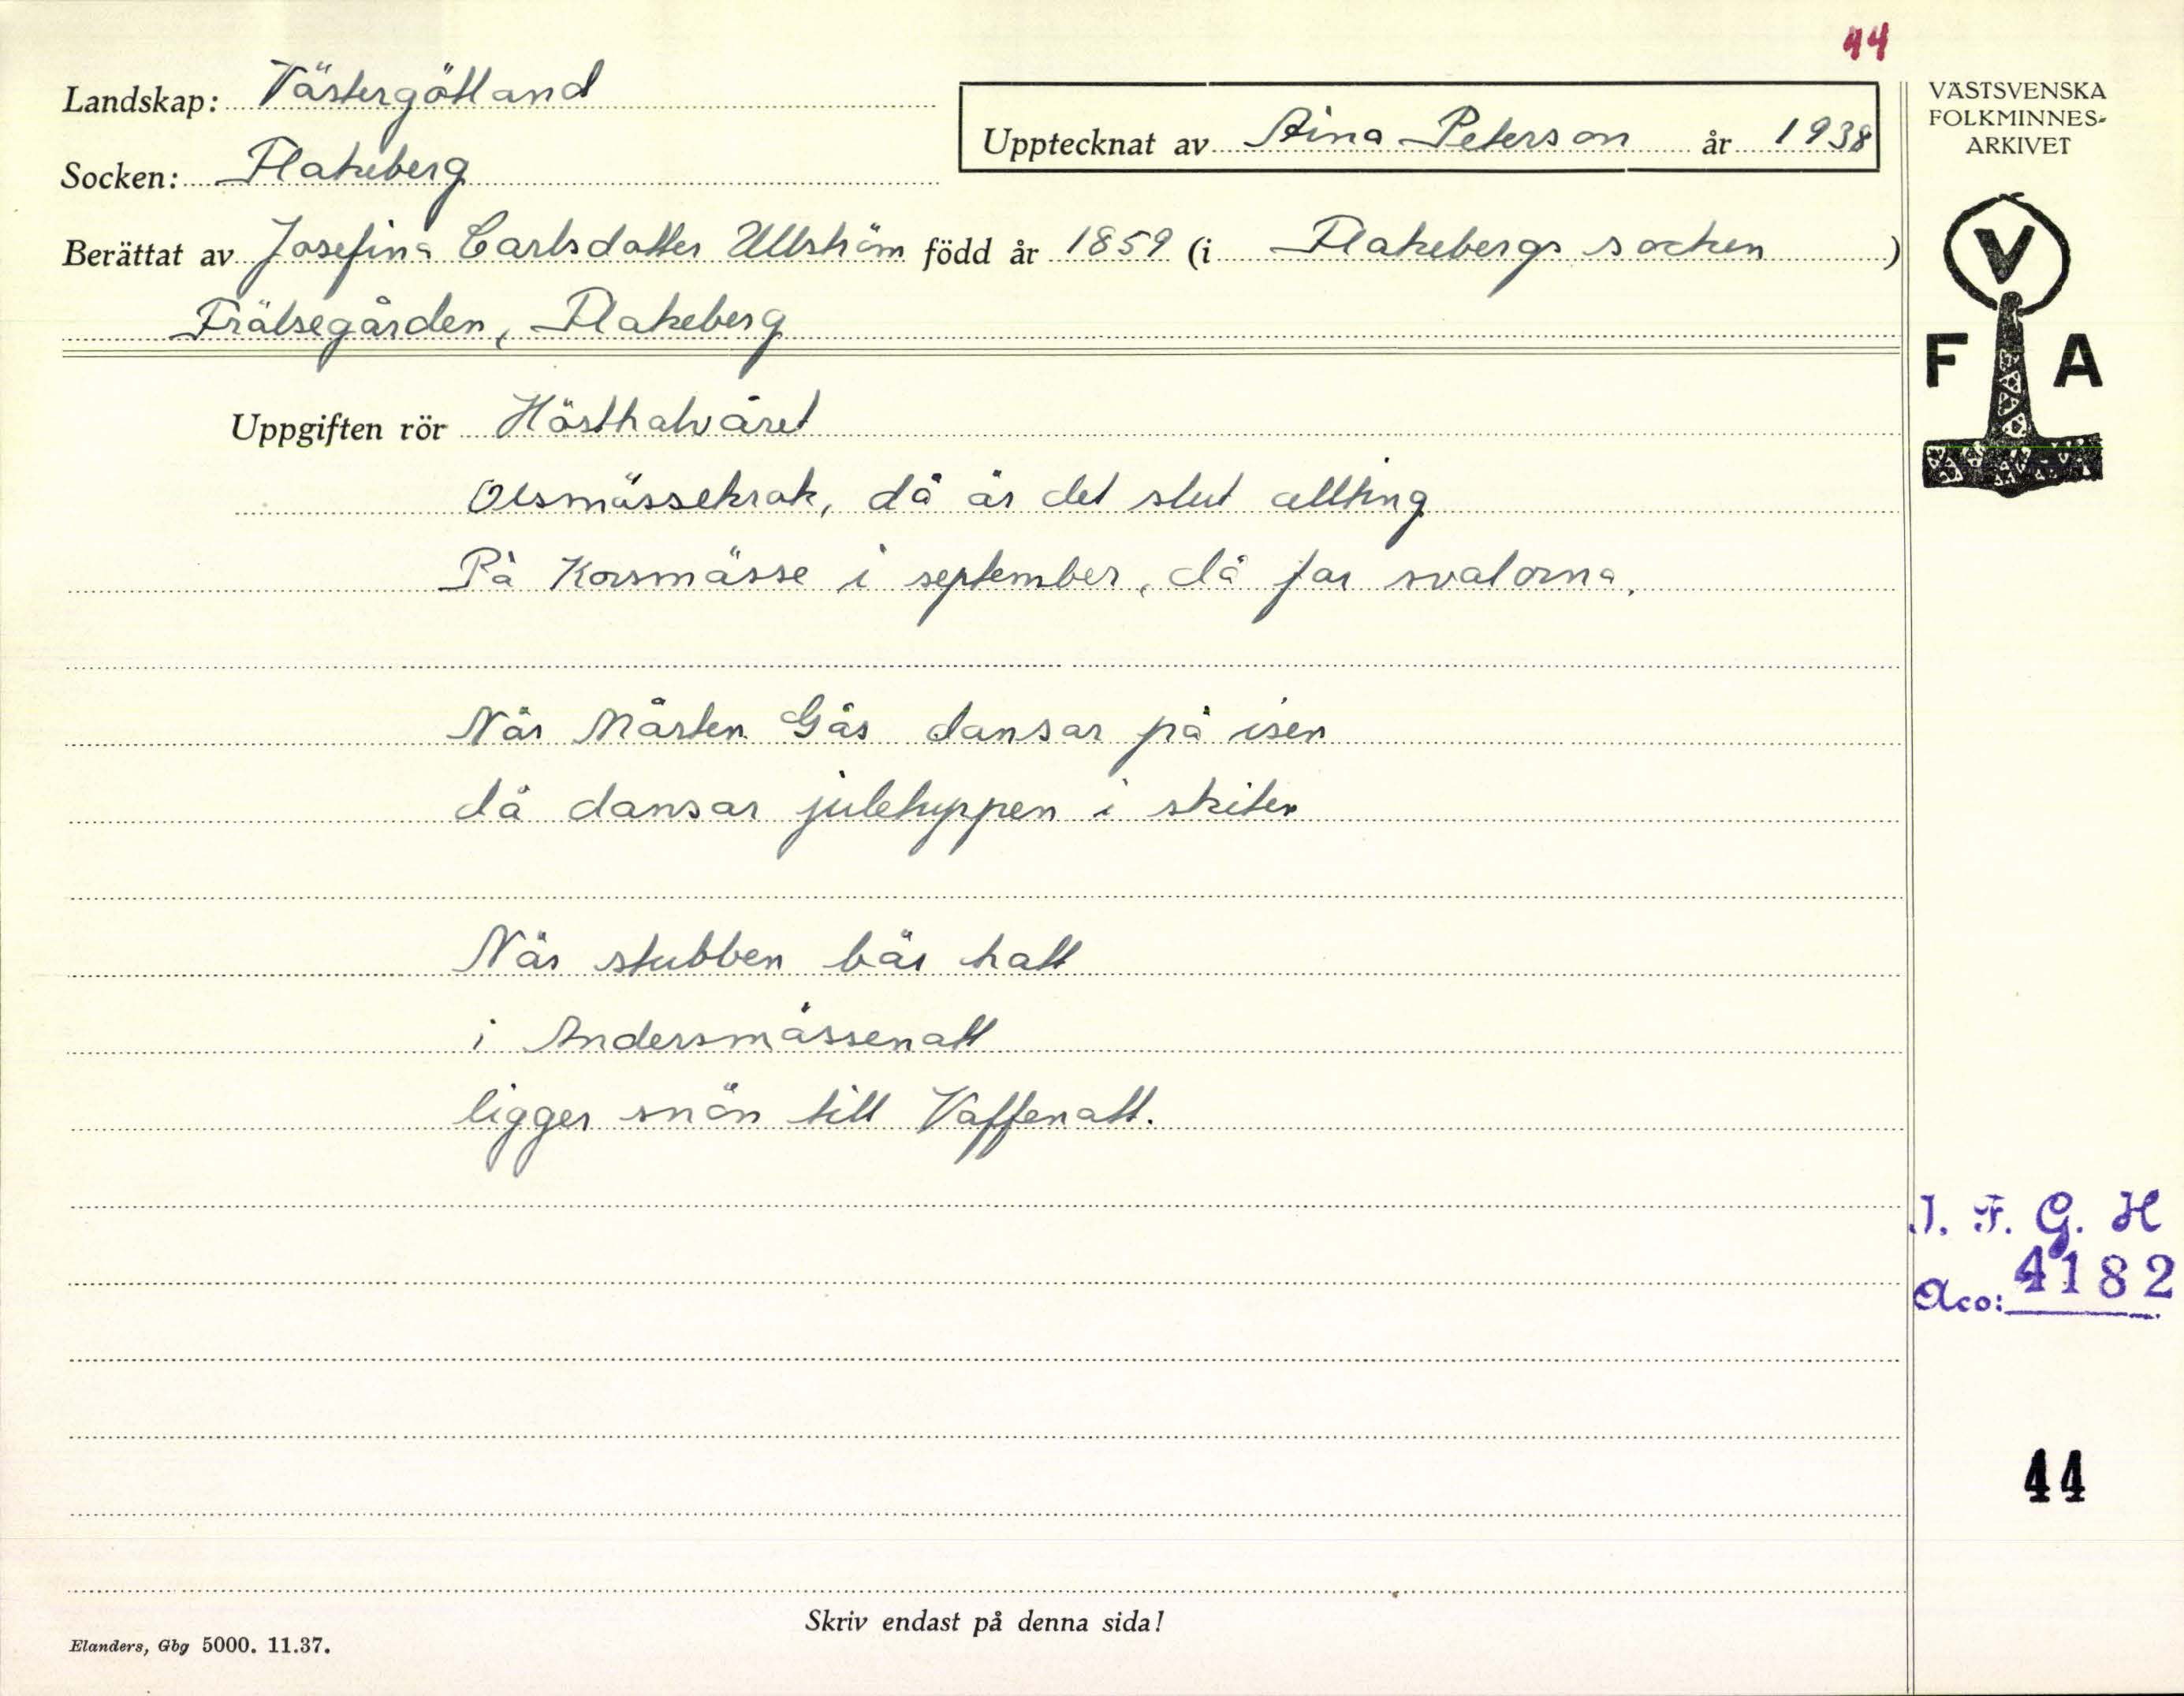 44
Landskap: Västergötland
Upptecknat av Aina Peterson år 1938
VÄSTSVENSKA
FOLKMINNES-
ARKIVET
Socken: Flakeberg
Berättat av Josefina Carlsdotter Ullström född år 1859 (i Flakebergs socken)
Frälsegården, Flakeberg
V
F A
Uppgiften rör Hösthalvåret
Olsmässekrok, då är det slut allting
På Korsmässe i september, då far svalorna.
När Mårten Gås dansar på isen
då dansar juletuppen i skiten
När stubben bär hatt
i Andersmässenatt
ligger snön till Vaffenatt.
I. F. G. H
Acc: 4182
44
Skriv endast på denna sida!
Elanders, Gbg 5000. 11.37.